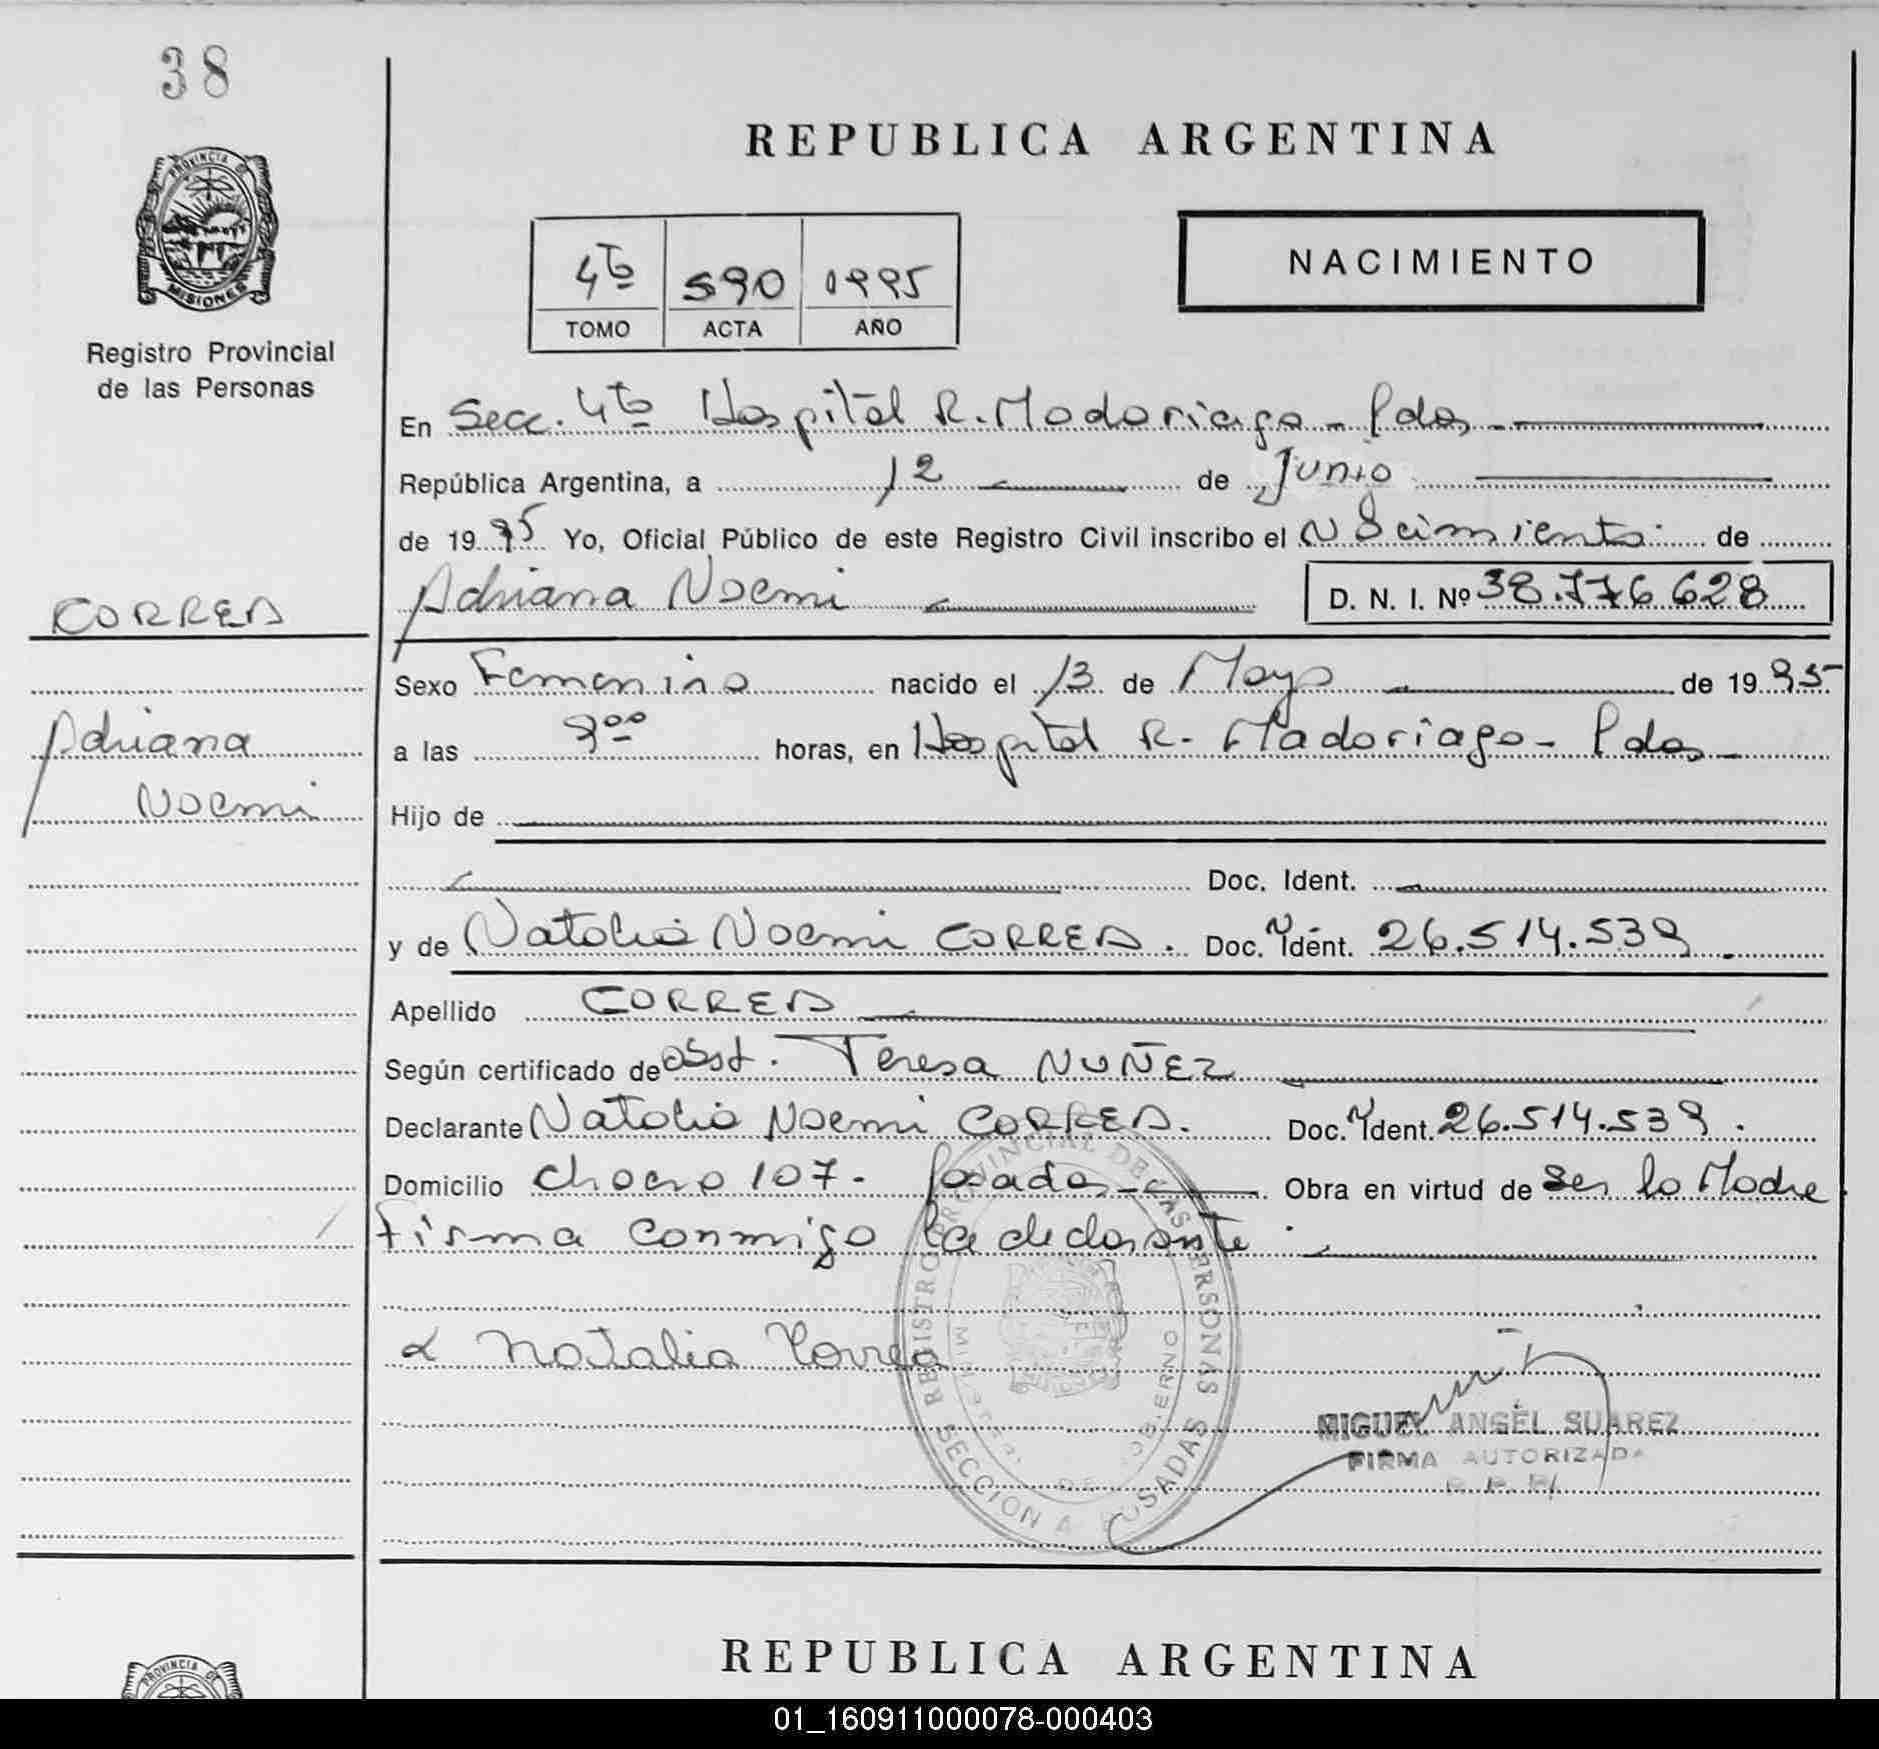 38
REPUBLICA ARGENTINA
PROVINCIA DE
MISIONES
Registro Provincial
de las Personas
4to 590 1995
TOMO ACTA AÑO
NACIMIENTO
En Secc. 4to Hospital R. Madariaga - Pdas -
República Argentina, a 12 de Junio
de 1995 Yo, Oficial Público de este Registro Civil inscribo el Nacimiento de
Adriana Noemi D. N. I. Nº 38.776.628
CORREA
Sexo Femenino nacido el 13 de Mayo de 1995
Adriana
a las 9 00 horas, en Hospital R. Madariaga - Pdas -
Noemi
Hijo de
Doc. Ident.
y de Natalia Noemi CORREA. Doc. Ident. 26.514.539
Apellido CORREA
Según certificado de obst. Teresa NUÑEZ
Declarante Natalia Noemi CORREA. Doc. Ident. 26.514.539.
Domicilio Chaco 107- Posadas- Obra en virtud de ser la Madre
Firma conmigo la declarante.
Natalia Correa
REGISTRO PROVINCIAL DE LAS PERSONAS
SECCION POSADAS
MIGUEL ANGEL SUAREZ
FIRMA AUTORIZADA
REPUBLICA ARGENTINA
PROVINCIA DE
01_160911000078-000403